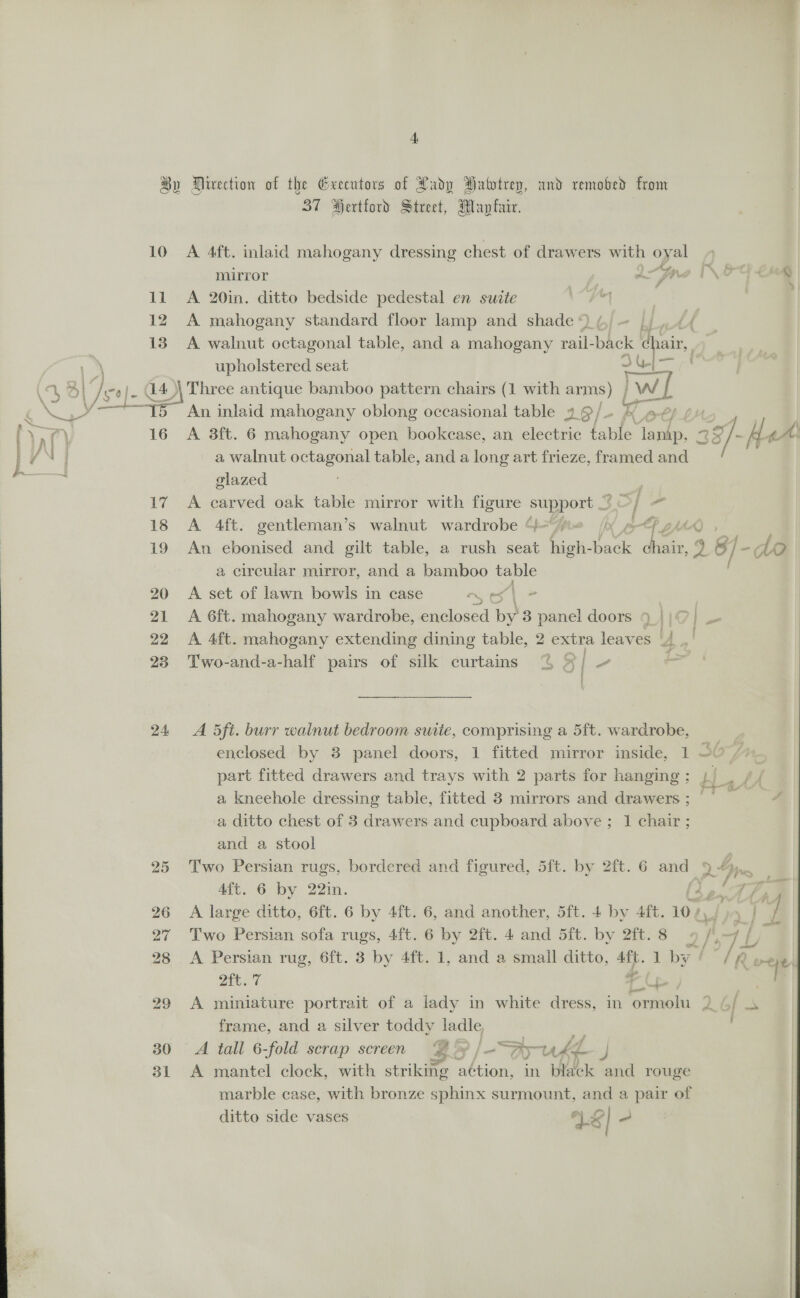 4
By Direction of the Executors of Lady Hawtrey, and removed from
37 Hertford Street, Mayfair.
10 A 4ft. inlaid mahogany dressing chest of drawers with oyal
mirror
11 A 20in. ditto bedside pedestal en suite
12 A mahogany standard floor lamp and shade
13 A walnut octagonal table, and a mahogany rail-back chair,
upholstered seat
14 Three antique bamboo pattern chairs (1 with arms)
15 An inlaid mahogany oblong occasional table
16 A 3ft. 6 mahogany open bookcase, an electric table lamp,
a walnut octagonal table, and a long art frieze, framed and
glazed
17 A carved oak table mirror with figure support
18 A 4ft. gentleman's walnut wardrobe
19 An ebonised and gilt table, a rush seat high-back chair,
a circular mirror, and a bamboo table
20 A set of lawn bowls in case
21 A 6ft. mahogany wardrobe, enclosed by 3 panel doors
22 A 4ft. mahogany extending dining table, 2 extra leaves
23 Two-and-a-half pairs of silk curtains
24 A 5ft. burr walnut bedroom suite, comprising a 5ft. wardrobe,
enclosed by 3 panel doors, 1 fitted mirror inside, 1
part fitted drawers and trays with 2 parts for hanging ;
a kneehole dressing table, fitted 3 mirrors and drawers ;
a ditto chest of 3 drawers and cupboard above ; 1 chair ;
and a stool
25 Two Persian rugs, bordered and figured, 5ft. by 2ft. 6 and
4ft. 6 by 22in.
26 A large ditto, 6ft. 6 by 4ft. 6, and another, 5ft. 4 by 4ft. 10
27 Two Persian sofa rugs, 4ft. 6 by 2ft. 4 and 5ft. by 2ft. 8
28 A Persian rug, 6ft. 3 by 4ft. 1, and a small ditto, 4ft. 1 by
2ft. 7
29 A miniature portrait of a lady in white dress, in ormolu
frame, and a silver toddy ladle
30 A tall 6-fold scrap screen
31 A mantel clock, with striking action, in black and rouge
marble case, with bronze sphinx surmount, and a pair of
ditto side vases